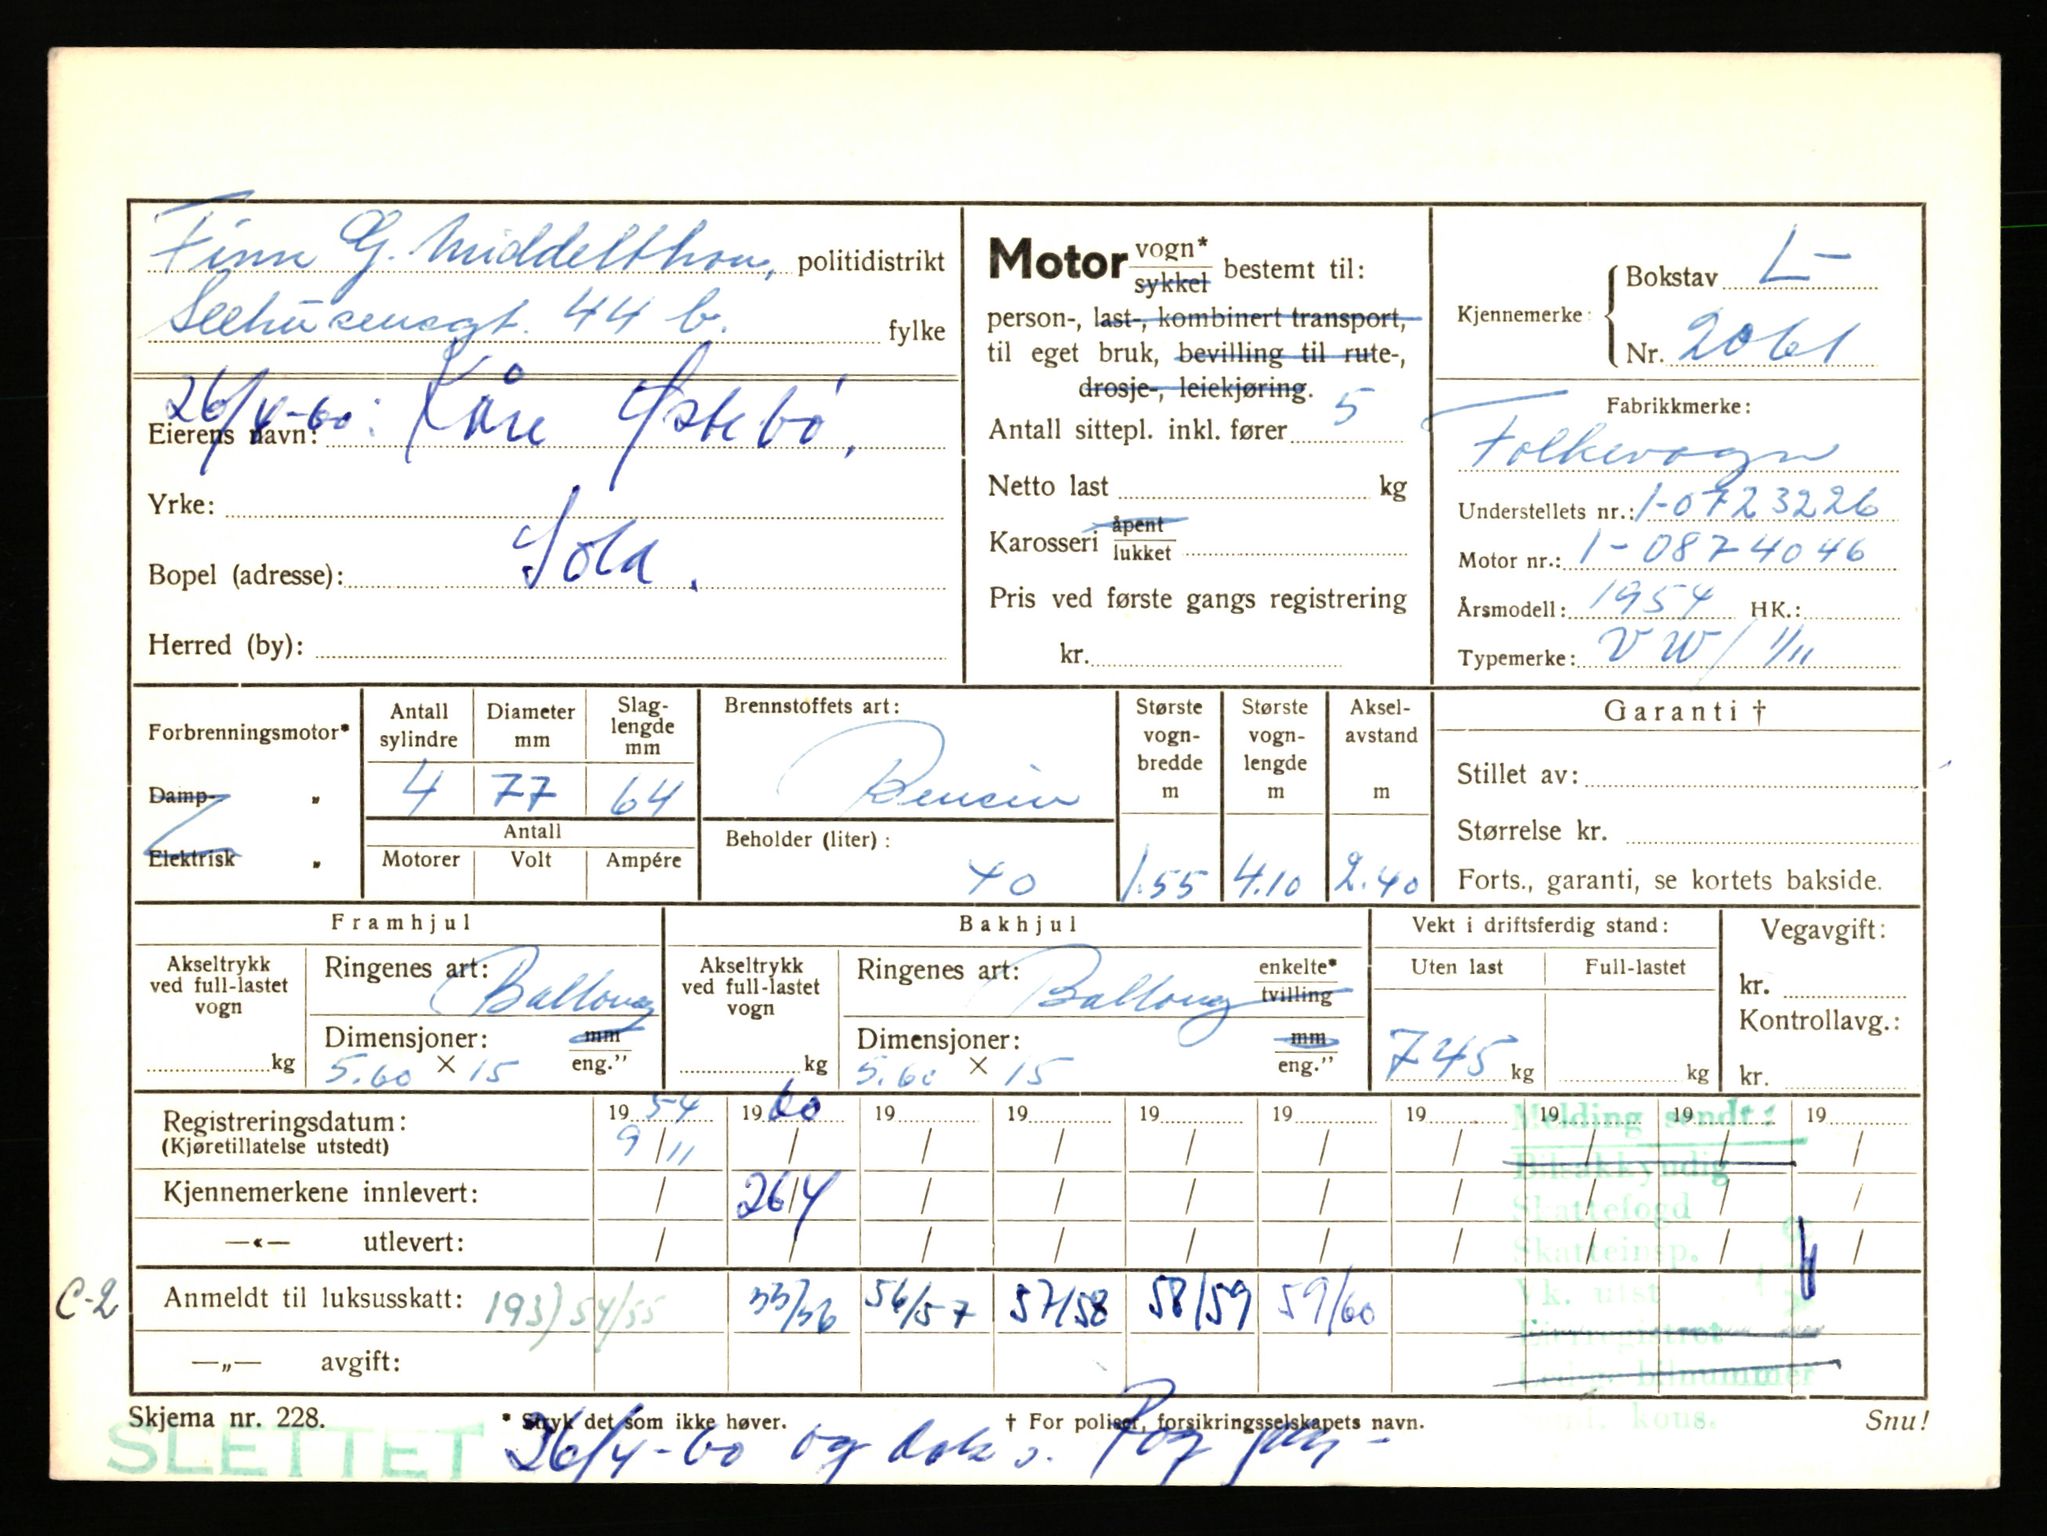 Finn G. Middelthon, politidistrikt
Seehusensgt. 44 b. fylke
26/4-60: Kåre Østebø,
Eierens navn:
Yrke:
Sola.
Bopel (adresse):
Herred (by):
Motor vogn* sykkel bestemt til:
person-, last-, kombinert transport,
til eget bruk, bevilling til rute-,
drosje-, leiekjøring.
Antall sittepl. inkl. fører 5
Netto last kg
Karosseri åpent lukket
Pris ved første gangs registrering
kr.
Kjennemerke: Bokstav L-
Nr. 2061
Fabrikkmerke:
Folkevogn
Understellets nr.: 1-0723226
Motor nr.: 1-0874046
Årsmodell: 1954 HK.:
Typemerke: VW/ 1/11
Forbrenningsmotor*
Damp- „
Elektrisk „
Antall sylindre
4
Diameter mm
77
Slag-lengde mm
64
Antall
Motorer Volt Ampére
Brennstoffets art:
Bensin
Beholder (liter):
40
Største vogn-bredde m
1.55
Største vogn-lengde m
4.10
Aksel-avstand m
2.40
Garanti †
Stillet av:
Størrelse kr.
Forts., garanti, se kortets bakside.
Framhjul
Akseltrykk ved full-lastet vogn
kg
Ringenes art: Ballong
Dimensjoner: mm
5.60 × 15 eng.”
Bakhjul
Akseltrykk ved full-lastet vogn
kg
Ringenes art: Ballong enkelte* tvilling
Dimensjoner: mm
5.60 × 15 eng.”
Vekt i driftsferdig stand:
Uten last Full-lastet
745 kg kg
Vegavgift:
kr.
Kontrollavg.:
kr.
Registreringsdatum: 19 54 19 60 19 19 19 19 19 19 19 19
(Kjøretillatelse utstedt) 9/11 / / / / / / / / /
Kjennemerkene innlevert: / 26/4 / / / / / / / /
—«— utlevert: / / / / / / / / / /
C-2 Anmeldt til luksusskatt: 193) 54/55 55/56 56/57 57/58 58/59 59/60
—„— avgift:
Melding sendt:
Bilsakkyndig
Skattefogd
Skatteinsp.
Vk. utst
Skjema nr. 228. * Stryk det som ikke høver. † For poliser, forsikringsselskapets navn. Snu!
SLETTET 26/4-60 og